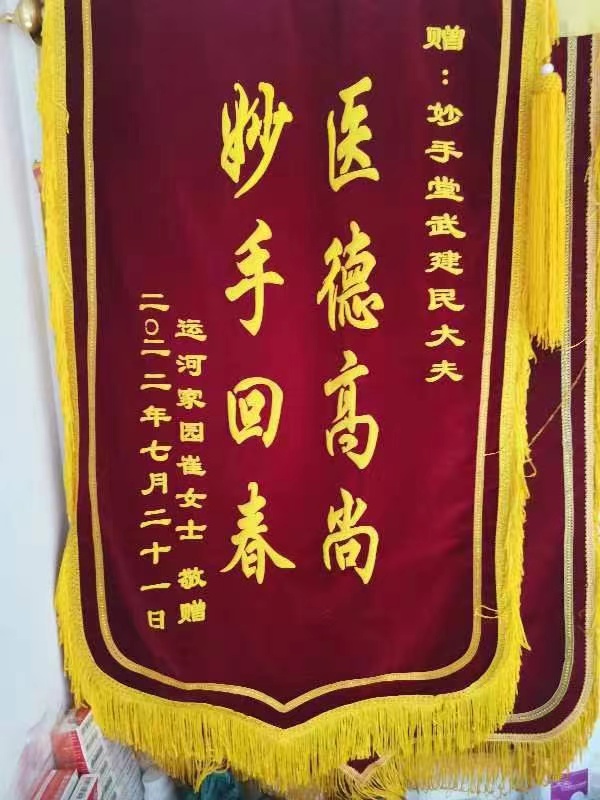 赠：妙手堂武建民大夫
医德高尚
妙手回春
运河家园崔女士 敬赠
二〇二二年七月二十一日